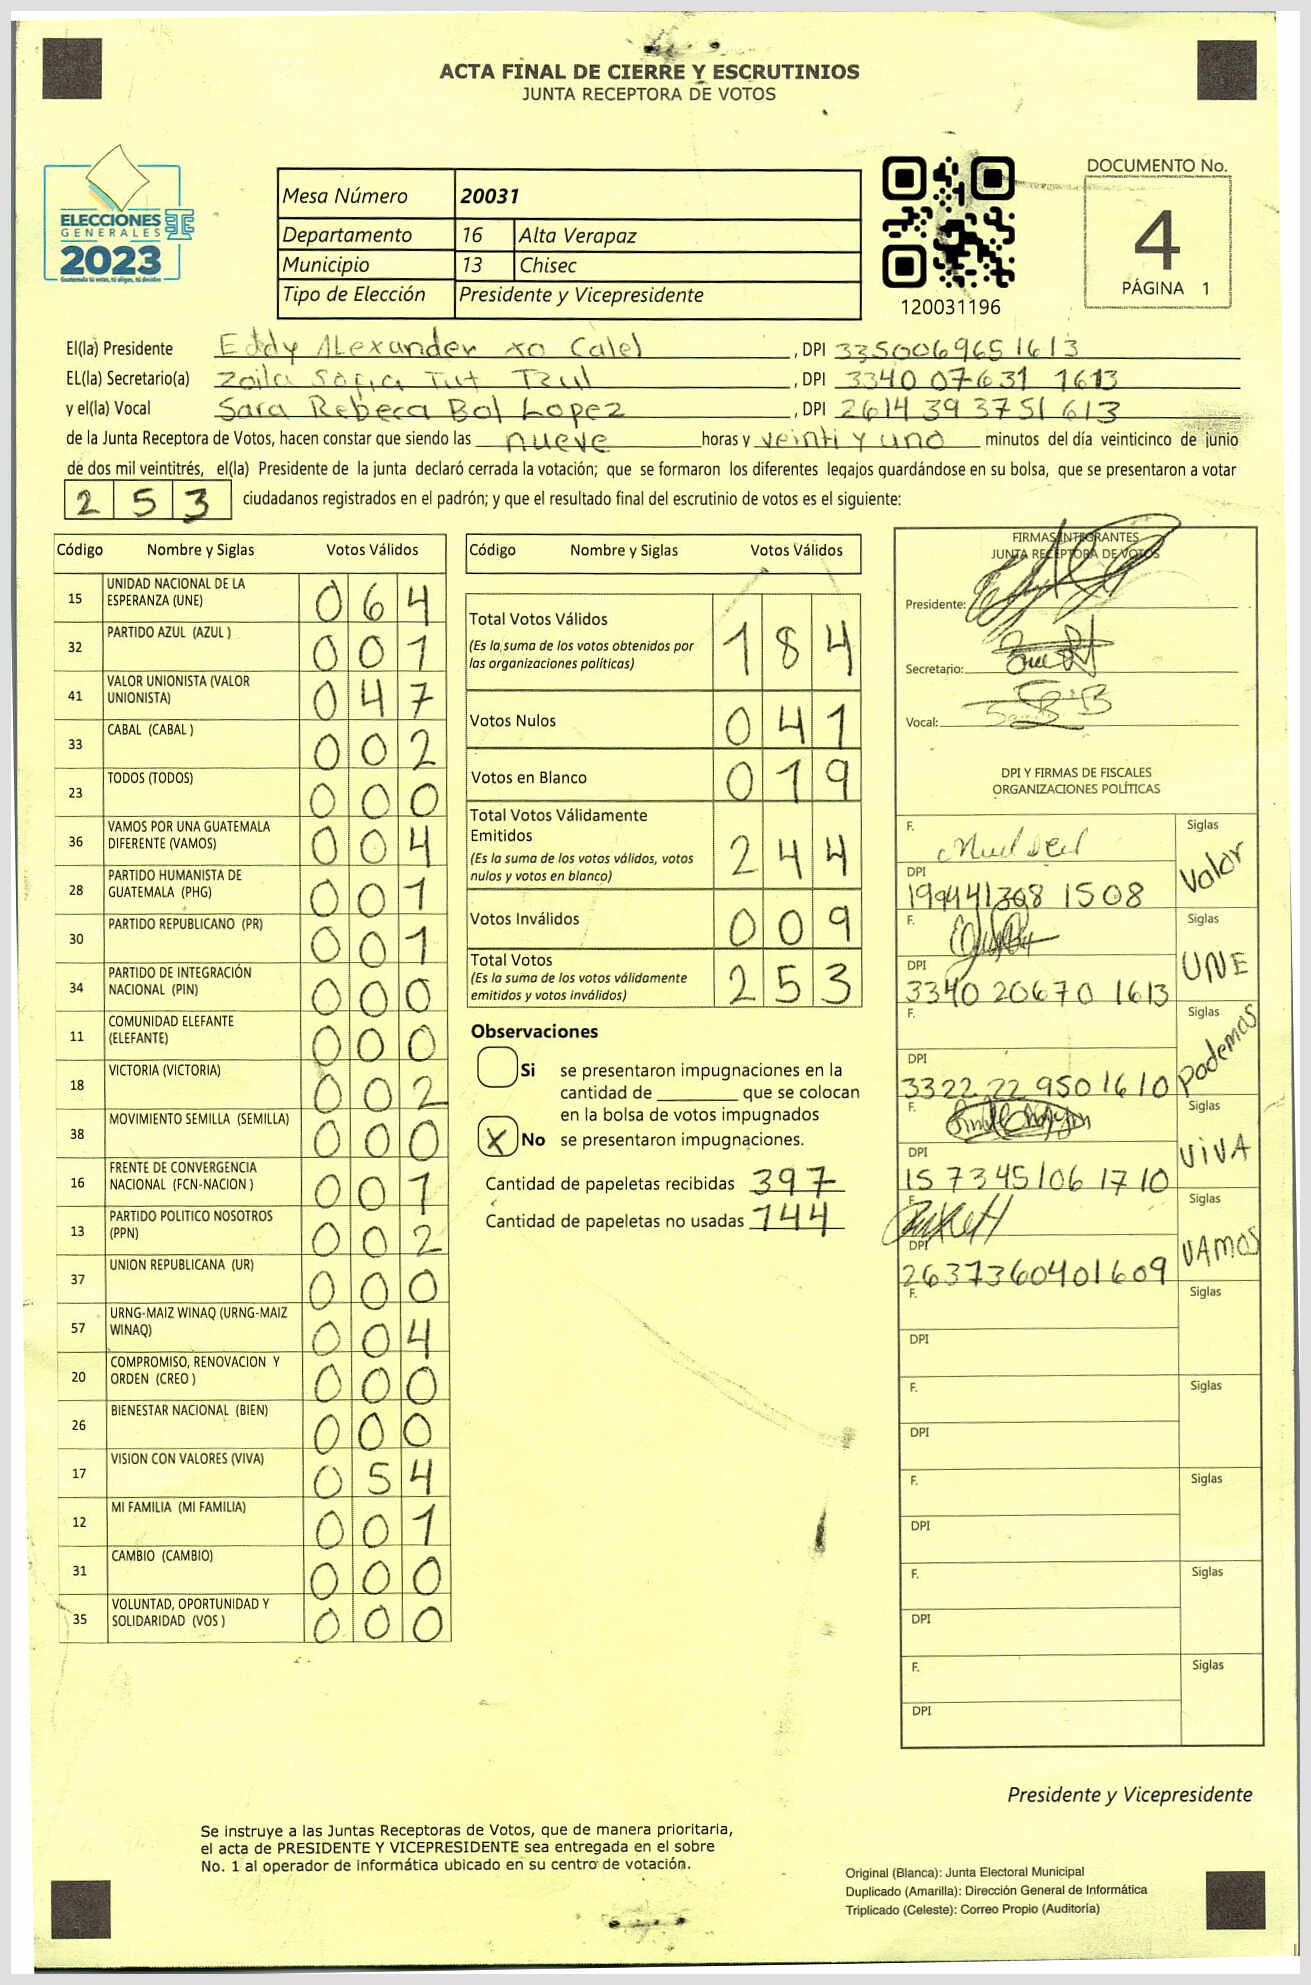 ACTA FINAL DE CIERRE Y ESCRUTINIOS
JUNTA RECEPTORA DE VOTOS
ELECCIONES
GENERALES
2023
Guatemala tú eres, tú eliges, tú decides
Mesa Número 20031
Departamento 16 Alta Verapaz
Municipio 13 Chisec
Tipo de Elección Presidente y Vicepresidente
120031196
DOCUMENTO No.
4
PÁGINA 1
El(la) Presidente Eddy Alexander xo Calel, DPI 3350069651613
EL(la) Secretario(a) Zoila Sofia Tut Tzul, DPI 3340 07631 1613
y el(la) Vocal Sara Rebeca Bol Lopez, DPI 2614 39 3751 613
de la Junta Receptora de Votos, hacen constar que siendo las nueve horas y veinti y uno minutos del día veinticinco de junio
de dos mil veintitrés, el(la) Presidente de la junta declaró cerrada la votación; que se formaron los diferentes legajos guardándose en su bolsa, que se presentaron a votar
2 5 3 ciudadanos registrados en el padrón; y que el resultado final del escrutinio de votos es el siguiente:
Código Nombre y Siglas Votos Válidos
15 UNIDAD NACIONAL DE LA ESPERANZA (UNE) 0 6 4
32 PARTIDO AZUL (AZUL ) 0 0 1
41 VALOR UNIONISTA (VALOR UNIONISTA) 0 4 7
33 CABAL (CABAL ) 0 0 2
23 TODOS (TODOS) 0 0 0
36 VAMOS POR UNA GUATEMALA DIFERENTE (VAMOS) 0 0 4
28 PARTIDO HUMANISTA DE GUATEMALA (PHG) 0 0 1
30 PARTIDO REPUBLICANO (PR) 0 0 1
34 PARTIDO DE INTEGRACIÓN NACIONAL (PIN) 0 0 0
11 COMUNIDAD ELEFANTE (ELEFANTE) 0 0 0
18 VICTORIA (VICTORIA) 0 0 2
38 MOVIMIENTO SEMILLA (SEMILLA) 0 0 0
16 FRENTE DE CONVERGENCIA NACIONAL (FCN-NACION ) 0 0 1
13 PARTIDO POLITICO NOSOTROS (PPN) 0 0 2
37 UNION REPUBLICANA (UR) 0 0 0
57 URNG-MAIZ WINAQ (URNG-MAIZ WINAQ) 0 0 4
20 COMPROMISO, RENOVACION Y ORDEN (CREO ) 0 0 0
26 BIENESTAR NACIONAL (BIEN) 0 0 0
17 VISION CON VALORES (VIVA) 0 5 4
12 MI FAMILIA (MI FAMILIA) 0 0 1
31 CAMBIO (CAMBIO) 0 0 0
35 VOLUNTAD, OPORTUNIDAD Y SOLIDARIDAD (VOS ) 0 0 0
Código Nombre y Siglas Votos Válidos
Total Votos Válidos 1 8 4
(Es la suma de los votos obtenidos por
las organizaciones políticas)
Votos Nulos 0 4 1
Votos en Blanco 0 1 9
Total Votos Válidamente
Emitidos 2 4 4
(Es la suma de los votos válidos, votos
nulos y votos en blanco)
Votos Inválidos 0 0 9
Total Votos 2 5 3
(Es la suma de los votos válidamente
emitidos y votos inválidos)
Observaciones
Si se presentaron impugnaciones en la
cantidad de ________ que se colocan
en la bolsa de votos impugnados
X No se presentaron impugnaciones.
Cantidad de papeletas recibidas 397
Cantidad de papeletas no usadas 144
FIRMAS INTEGRANTES
JUNTA RECEPTORA DE VOTOS
Presidente:
Secretario:
Vocal:
DPI Y FIRMAS DE FISCALES
ORGANIZACIONES POLÍTICAS
F. Siglas Valor
DPI 1508
F. Siglas UNE
DPI 3340 20670 1613
F. Siglas podemos
DPI 3322 22 950 1610
F. Siglas VIVA
DPI 15 7345106 1710
F. Siglas VAMOS
DPI 2637360401609
F. Siglas
DPI
F. Siglas
DPI
F. Siglas
DPI
F. Siglas
DPI
F. Siglas
DPI
Presidente y Vicepresidente
Se instruye a las Juntas Receptoras de Votos, que de manera prioritaria,
el acta de PRESIDENTE Y VICEPRESIDENTE sea entregada en el sobre
No. 1 al operador de informática ubicado en su centro de votación.
Original (Blanca): Junta Electoral Municipal
Duplicado (Amarilla): Dirección General de Informática
Triplicado (Celeste): Correo Propio (Auditoría)